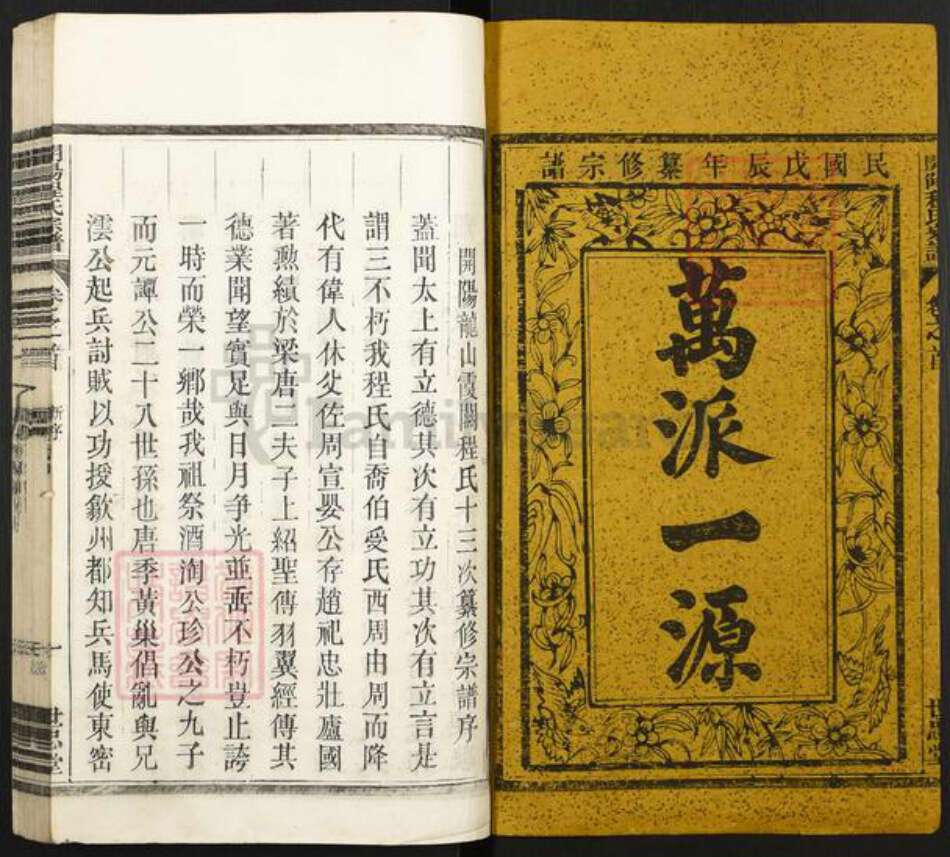 民國戊辰年纂修宗譜
萬派一源
開陽龍山霞關程氏十三次纂修宗譜序
蓋聞太上有立德其次有立功其次有立言是
謂三不朽我程氏自喬伯受氏西周由周而降
代有偉人休父佐周宣嬰公存趙祀忠壯廬國
著勲績於梁唐二夫子上紹聖傳羽翼經傳其
德業聞望實足與日月爭光並壽不朽豈止誇
一時而榮一鄉哉我祖祭酒洵公珍公之九子
而元譚公二十八世孫也唐季黃巢倡亂與兄
澐公起兵討賊以功授歙州都知兵馬使東密
世忠堂